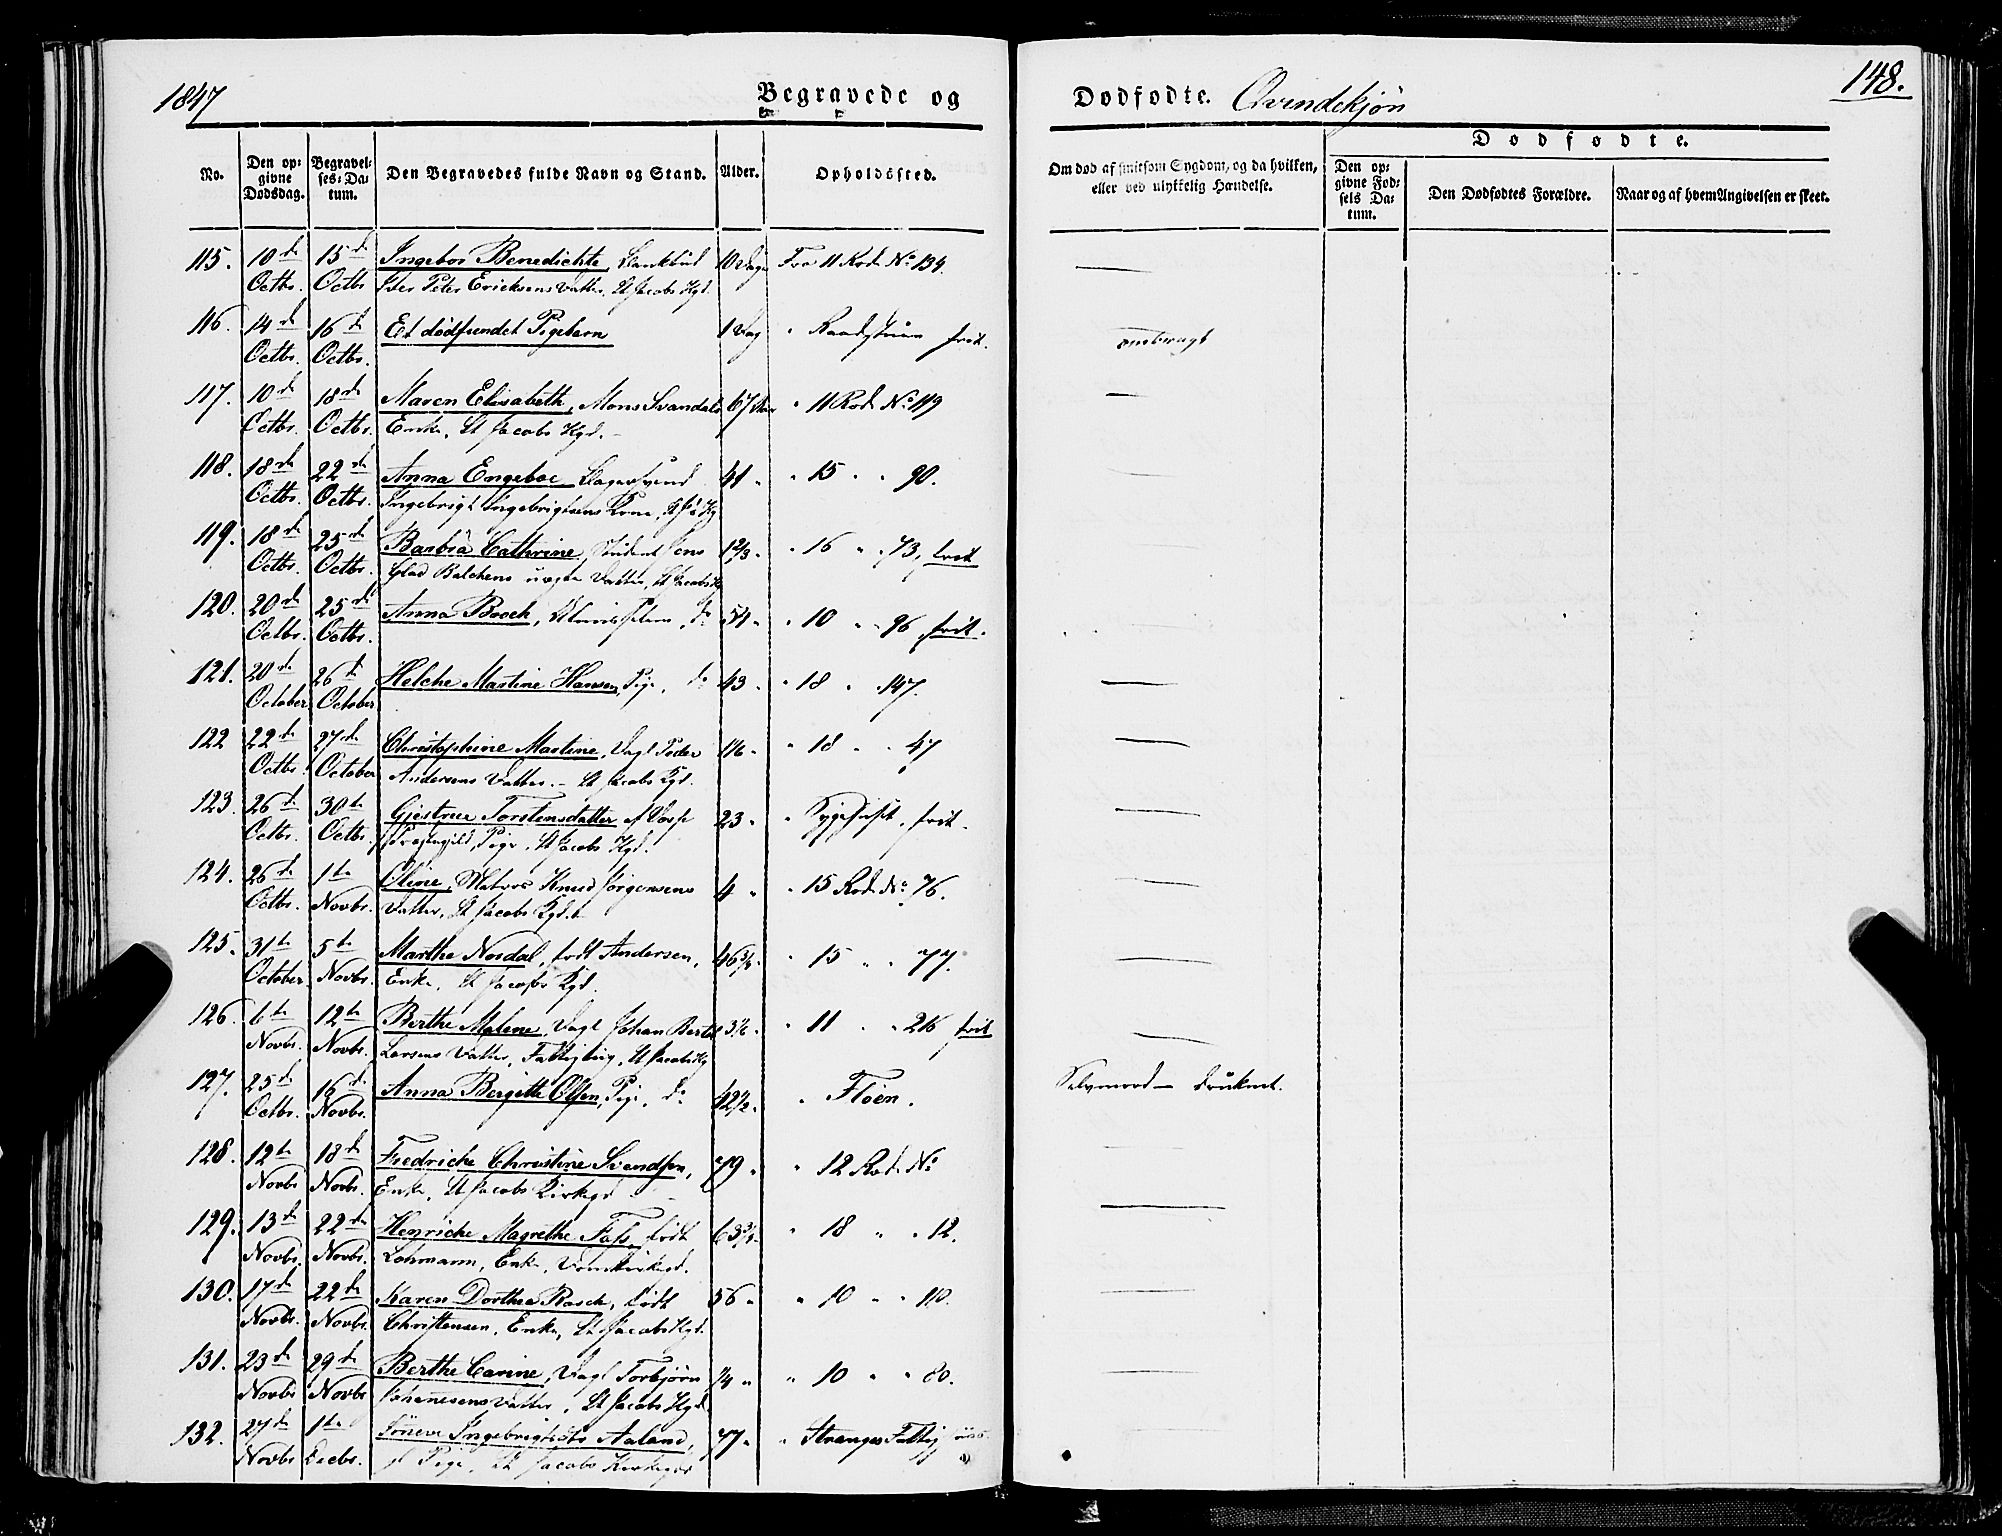 1847
Begravede og
Dødfødte. Qvindekjøn
148.
No.
Den opgivne Dødsdag.
Begravelses-Datum.
Den Begravedes fulde Navn og Stand.
Alder.
Opholdssted.
Om død af smitsom Sygdom, og da hvilken, eller ved ulykkelig Hændelse.
Dødfødte.
Den opgivne Fødsels Datum.
Den Dødfødtes Forældre.
Naar og af hvem Angivelsen er skeet.
115. 10de 15de Ingebor Benedichte, 10 Dage Fra 11 Rode No 134.
Octbr. Octbr Peter Ericksens Datter, St Jacobs Kgd.
116. 14de 16de Et dødfundet Pigebarn 1 Dag " Raadstuen frit. ombragt
Octbr. Octbr.
117. 10de 18de Maren Elisabeth, Mons Svendals 67 Aar " 11 Rode No 119
Octbr. Octbr. Enke, St Jacobs Kgd.
118. 18de 22de Anna Engebor 41 " " 15 " " 90.
Octbr. Octbr. Ingebrigt Ingebrigtsens Kone, St J's Kg
119. 18de 25de Barbra Cathrine, Student Jens 1 2/3 " " 16 " " 73, frit
Octbr. Octbr. Glad Balchens uægte Datter, St Jacobs Kg
120. 20de 25de Anna Booch, Do 54 " " 10 " " 96 frit.
Octbr. Octbr.
121. 20de 26de Helche Martine Hansen, Pige, Do 43 " " 18 " " 147.
October October
122 22de 27de Christophine Martine, Dagl Peder " " 18 " " 47
Octbr. October Andersens Datter. - St Jacobs Kgd.
123. 26de 30te Gjestrue Torstensdatter af Voss 23 " " Sygehuset. frit.
Octbr. Octbr. Præstegjeld, Pige, St Jacobs Kgd.
124. 26de 1te Oline, Matros Knud Jørgensens 4 " " 15 Rode No 76.
Octbr. Novbr. Datter, St Jacobs Kgd.
125. 31te 5te Marthe Nordal, født Andersen, 46 3/4 " " 15 " " 77.
October Novbr. Enke, St Jacobs Kgd.
126. 6te 12te Berthe Malene, Dagl Johan Bertel 3 1/2 " " 11 " " 26 frit
Novbr. Novbr. Larsens Datter, Fattig, St Jacobs Kg
127. 25de 16de Anna Bergitte Olsen, Pige, Do 42 1/2 " " Fløen. Selvmord - druknet.
Octbr. Novbr.
128. 12te 18de Fredriche Christine Svendsen, 79 " " 12 Rode No
Novbr Novbr. Enke, St Jacobs Kirkegd
129. 13de 22de Henriche Magrethe Fass, født 63 3/4 " " 18 " " 12.
Novbr. Novbr. Lohmann, Enke, Domkirkegd.
130. 17de 22de Karen Dorthea Rasch, født 56 " " 10 " " 110.
Novbr. Novbr. Christensen, Enke, St Jacobs Kgd.
131. 23de 29de Berthe Carine, Dagl Torbjørn 14 " " 10 " " 80.
Novbr Novbr Johannesens Datter, St Jacobs Kgd.
132. 27de 1te Søneve Ingebrigtsdtr Aaland, 77 " " Stranges Fattighuus
Novbr Decbr. Pige, St Jacobs Kirkegd